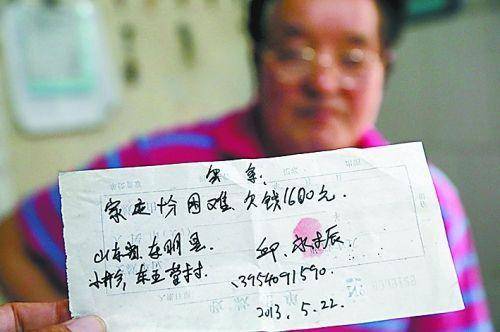 欠条.
家庭十分困难.欠钱1680元.
山东省.东明县.
邱. 辰
小井乡,东五营村.
13954091590.
2013.5.22.